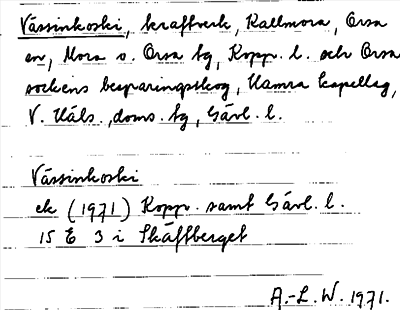 Vässinkoski, kraftverk, Kallmora, Orsa
en, Mora o. Orsa tg, Kopp. l. och Orsa
sockens besparingsskog, Hamra kapellag,
V. Häls. doms. tg, Gävl. l.
Vässinkoski
ek (1971) Kopp. samt Gävl. l.
15 E 3 i Skäftberget
A.-L. W. 1971.